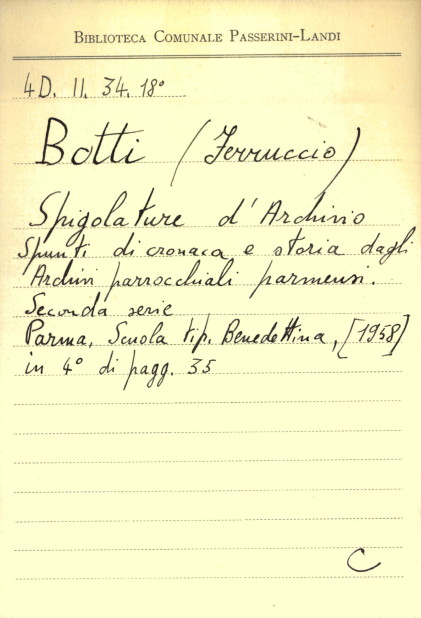 BIBLIOTECA COMUNALE PASSERINI-LANDI
4D. II. 34. 18°
Botti (Ferruccio)
Spigolature d'Archivio
Spunti di cronaca e storia dagli
Archivi parrocchiali parmensi.
Seconda serie
Parma, Scuola tip. Benedettina, [1958]
in 4° di pagg. 35
C